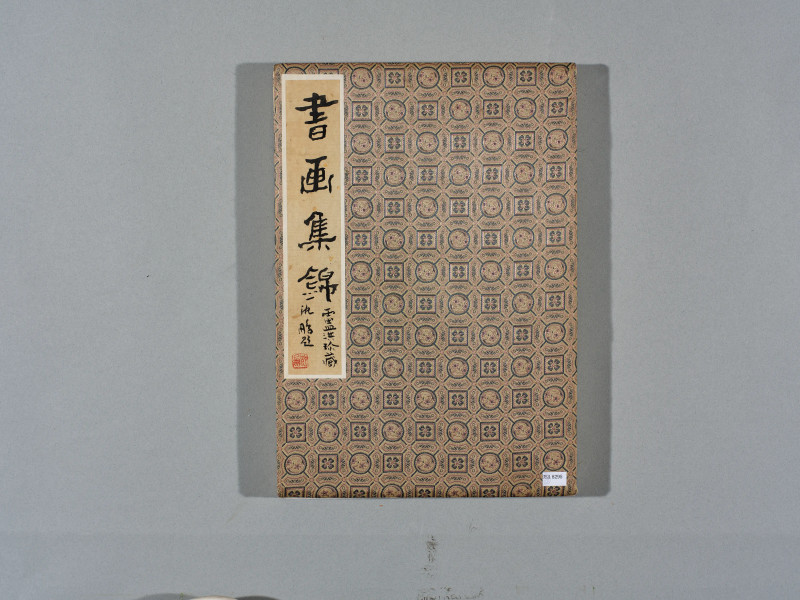 書画集錦
珍藏
沈鵬題